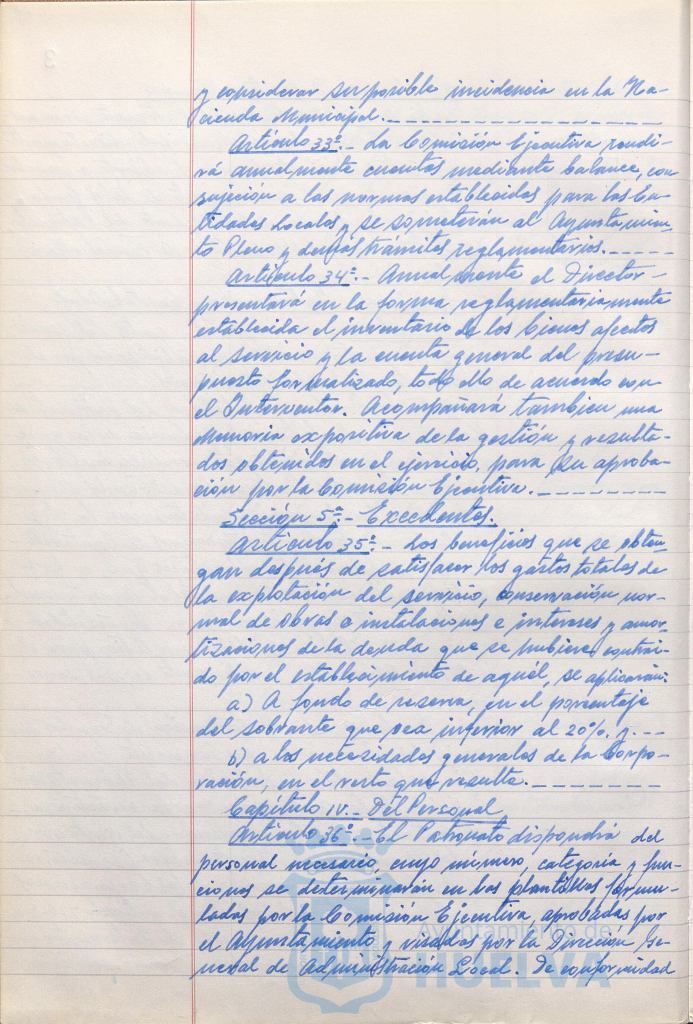 y considerar su posible incidencia en la Ha-
cienda Municipal.
Artículo 33º.- La Comisión Ejecutiva rendi-
rá anualmente cuentas mediante balance, con
sujeción a las normas establecidas para las En-
tidades Locales y se someterán al Ayuntamien-
to Pleno y demás trámites reglamentarios.
Artículo 34º.- Anualmente el Director
presentará en la forma reglamentariamente
establecida el inventario de los bienes afectos
al servicio y la cuenta general del presu-
puesto formalizado, todo ello de acuerdo con
el Interventor. Acompañará tambien una
Memoria expositiva de la gestión y resulta-
dos obtenidos en el ejercicio, para su aproba-
ción por la Comisión Ejecutiva.
Sección 5ª.- Excedentes.
Artículo 35º.- Los beneficios que se obten-
gan después de satisfacer los gastos totales de
la explotación del servicio, conservación nor-
mal de obras e instalaciones e intereses y amor-
tizaciones de la deuda que se hubiere contraí-
do por el establecimiento de aquél, se aplicarán:
a) A fondo de reserva, en el porcentaje
del sobrante que sea inferior al 20%. y.--
b) a las necesidades generales de la Corpo-
ración, en el resto que resulte.
Capítulo IV.- Del Personal
Artículo 36º.- El Patronato dispondrá del
personal necesario, cuyo número, categoría y fun-
ciones se determinarán en las plantillas formu-
ladas por la Comisión Ejecutiva, aprobadas por
el Ayuntamiento y visadas por la Dirección Ge-
neral de Administración Local. De conformidad
Ayuntamiento de
HUELVA